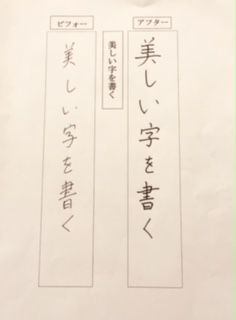 アフター
美しい字を書く
美しい字を書く
ビフォー
美しい字を書く